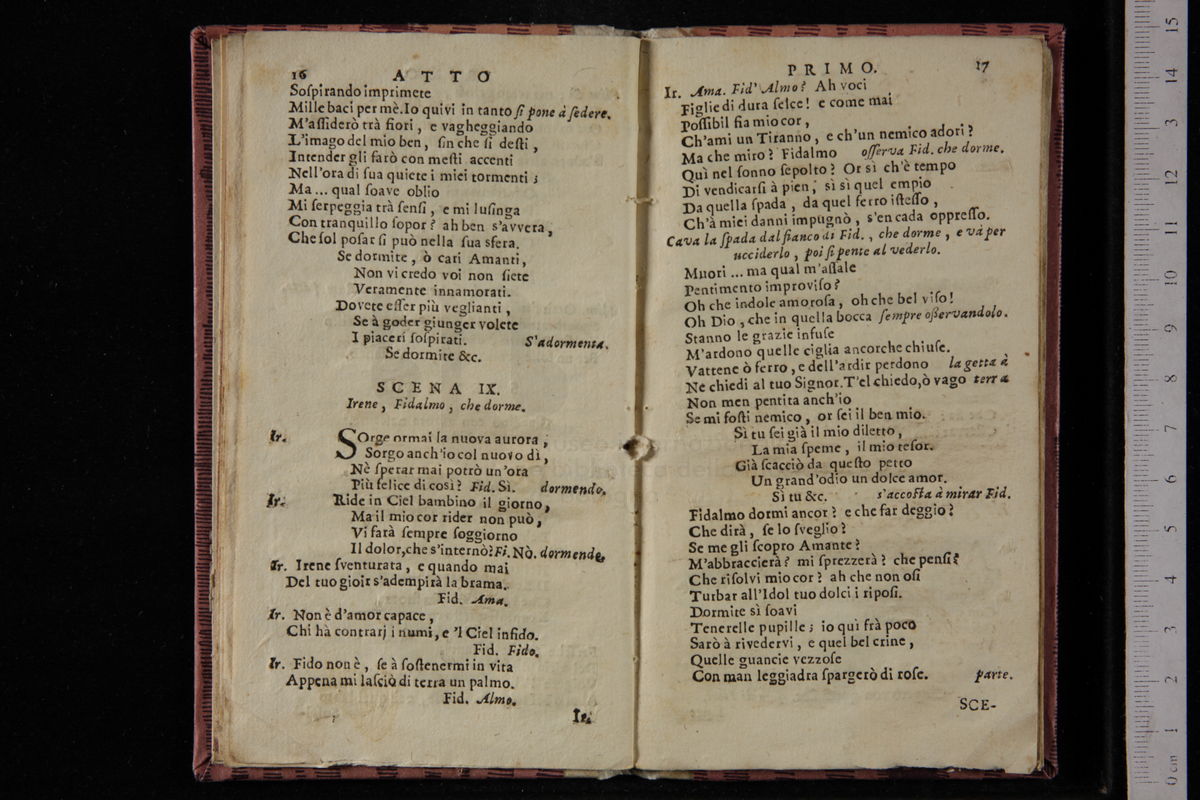 16 ATTO
Sospirando imprimete
Mille baci per mè. Io quivi in tanto si pone à sedere.
M'assiderò trà fiori, e vagheggiando
L'imago del mio ben, sin che si desti,
Intender gli farò con mesti accenti
Nell'ora di sua quiete i miei tormenti;
Ma... qual soave oblio
Mi serpeggia trà sensi, e mi lusinga
Con tranquillo sopor? ah ben s'avvera,
Che sol posar si può nella sua sfera.
Se dormite, ò cari Amanti,
Non vi credo voi non siete
Veramente innamorati.
Dovete esser più veglianti,
Se à goder giunger volete
I piaceri sospirati. S'adormenta.
Se dormite &c.
SCENA IX.
Irene, Fidalmo, che dorme.
Ir. SOrge ormai la nuova aurora,
Sorgo anch'io col nuovo dì,
Nè sperar mai potrò un'ora
Più felice di così? Fid. Sì. dormendo.
Ir. Ride in Ciel bambino il giorno,
Ma il mio cor rider non può,
Vi farà sempre soggiorno
Il dolor, che s'internò? Fi. Nò. dormende.
Ir. Irene sventurata, e quando mai
Del tuo gioir s'adempirà la brama.
Fid. Ama.
Ir. Non è d'amor capace,
Chi hà contrarj i numi, e 'l Ciel infido.
Fid. Fido.
Ir. Fido non è, se à sostenermi in vita
Appena mi lasciò di terra un palmo.
Fid. Almo.
Ir.
PRIMO. 17
Ir. Ama. Fid' Almo? Ah voci
Figlie di dura selce! e come mai
Possibil fia mio cor,
Ch'ami un Tiranno, e ch'un nemico adori?
Ma che miro? Fidalmo osserva Fid. che dorme.
Quì nel sonno sepolto? Or sì ch'è tempo
Di vendicarsi à pien; sì sì quel empio
Da quella spada, da quel ferro istesso,
Ch'à miei danni impugnò, s'en cada oppresso.
Cava la spada dal fianco di Fid., che dorme, e và per
ucciderlo, poi si pente al vederlo.
Muori... ma qual m'assale
Pentimento improviso?
Oh che indole amorosa, oh che bel viso!
Oh Dio, che in quella bocca sempre osservandolo.
Stanno le grazie infuse
M'ardono quelle ciglia ancorche chiuse.
Vattene ò ferro, e dell'ardir perdono la getta à
Ne chiedi al tuo Signor. T'el chiedo, ò vago terra
Non men pentita anch'io
Se mi fosti nemico, or sei il ben mio.
Sì tu sei già il mio diletto,
La mia speme, il mio tesor.
Già scacciò da questo petto
Un grand'odio un dolce amor.
Sì tu &c. s'accosta à mirar Fid.
Fidalmo dormi ancor? e che far deggio?
Che dirà, se lo sveglio?
Se me gli scopro Amante?
M'abbraccierà? mi sprezzerà? che pensi?
Che risolvi mio cor? ah che non osi
Turbar all'Idol tuo dolci i riposi.
Dormite sì soavi
Tenerelle pupille; io quì frà poco
Sarò à rivedervi, e quel bel crine,
Quelle guancie vezzose
Con man leggiadra spargerò di rose. parte.
SCE-
15
14
3
12
11
10
9
8
7
6
5
4
3
2
1
0 cm